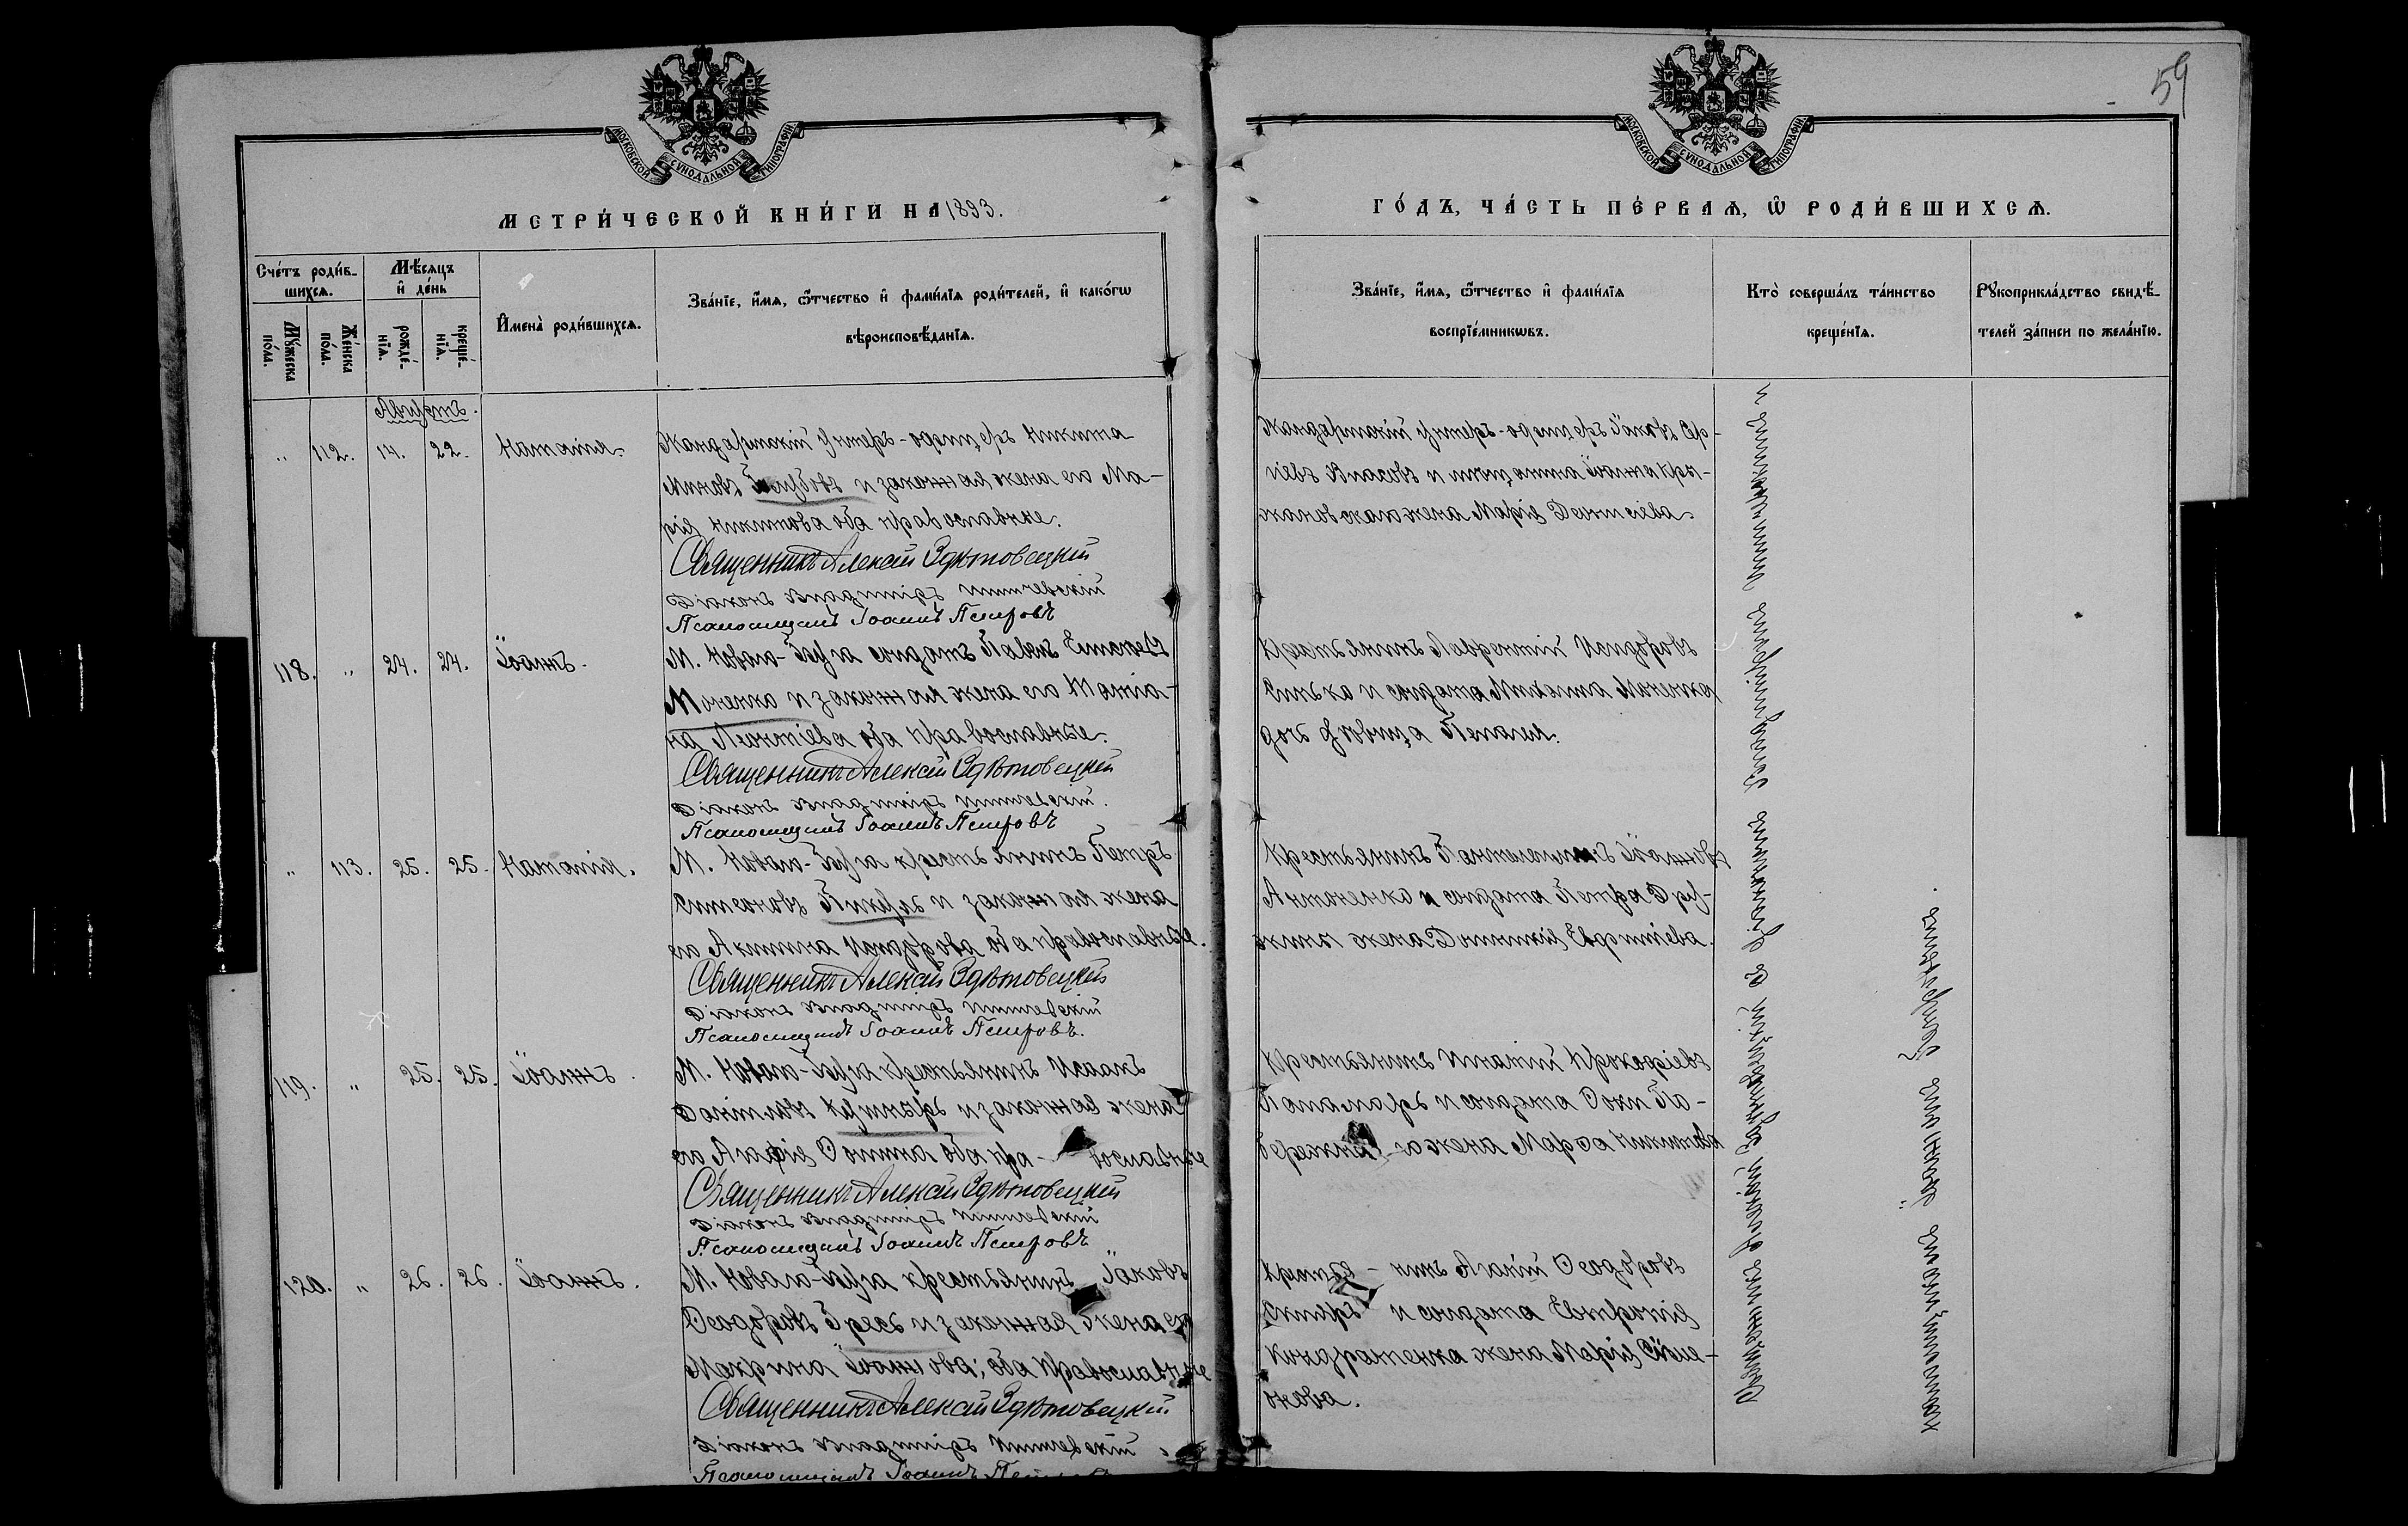 59
МОСКОВСКОЙ СѴНОДАЛЬНОЙ ТИПОГРАФІИ
МОСКОВСКОЙ СѴНОДАЛЬНОЙ ТИПОГРАФІИ
МЕТРИ́ЧЕСКОЙ КНИ́ГИ НА 1893.
ГО́ДЪ, ЧА́СТЬ ПЕ́РВАѦ, Ѡ҆ РОДИ́ВШИХСѦ.
Сче́тъ роди́в-
шихсѧ.
Мꙋ́жеска по́ла.
Же́нска по́ла.
Мѣ́сѧцъ и҆ де́нь
рожде́-нїѧ.
креще́-нїѧ.
И҆мена̀ роди́вшихсѧ.
Зва́нїе, и҆́мѧ, ѻ҆́тчество и҆ фами́лїѧ роди́телей, и҆ како́гѡ
вѣроисповѣ́данїѧ.
Зва́нїе, и҆́мѧ, ѻ҆́тчество и҆ фами́лїѧ
воспрїе́мникѡвъ.
Кто̀ соверша́лъ та́инство
креще́нїѧ.
Рꙋкоприкла́дство свидѣ́-
телей за́писи по жела́нїю.
Августъ.
" 112. 14. 22. Наталія.
Жандармскій унтеръ-офицеръ Никита
Миновъ Голубовъ и законная жена его Ма-
рія Никитова оба православные.
Священникъ Алексій
Діаконъ Владиміръ
Псаломщикъ Іоаннъ Петровъ
Жандармскій унтеръ-офицеръ Іаковъ Ер-
Власовъ и мѣщанина Іоанна
жена Марія Деонисіева.
118. " 24. 24. Іоаннъ.
М. Новаго-Буга солдатъ Павелъ
Моненко и законная жена его Татіа-
на Леонтіева оба православные.
Священникъ Алексій
Діаконъ Владиміръ
Псаломщикъ Іоаннъ Петровъ
Крестьянинъ Лаврентій Исидоровъ
и солдата Михаила
дочь дѣвица Пелагія.
" 113. 25. 25. Наталія.
М. Новаго-Буга крестьянинъ Петръ
Стефановъ Пикуль и законная жена
его Акилина Исидорова оба православные.
Священникъ Алексій
Діаконъ Владиміръ
Псаломщикъ Іоаннъ Петровъ.
Крестьянинъ Пантелеимонъ Іоанновъ
Антоненко и солдата Петра Дру-
жины жена Домникія Евфиміева.
119. " 25. 25. Іоаннъ.
М. Новаго-Буга крестьянинъ Исаакъ
Даніиловъ Кушниръ и законная жена
его Агафія Ѳомина оба пра-вославные
Священникъ Алексій
Діаконъ Владиміръ
Псаломщикъ Іоаннъ Петровъ
Крестьянинъ Игнатій Прокофіевъ
Паламаръ и солдата Ѳоки
жена Марѳа Никитова
120. " 26. 26. Іоаннъ.
М. Новаго-Буга крестьянинъ Іаковъ
Ѳеодоровъ и законная жена его
Макрина Іоаннова; оба православные
Священникъ Алексій
Діаконъ Владиміръ
Псаломщикъ Іоаннъ
Крестья-нинъ Агапій Ѳеодоровъ
и солдата Евтропія
Кондратенка жена Марія Симе-
онова.
Священникъ Алексій съ діакономъ Владиміромъ и
псаломщикомъ Іоанномъ Петровымъ.